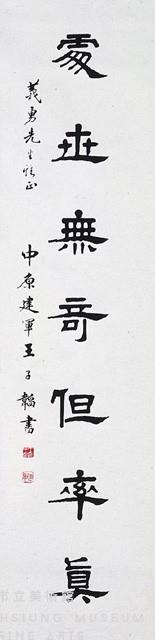 處世無奇但率真
義勇先生雅正
中原建軍王子韜書
市立美術館
HSIUNG MUSEUM
FINE ARTS